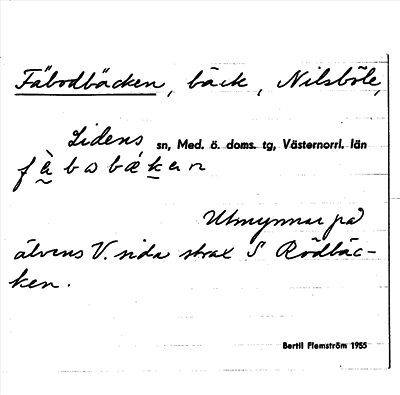 Fäbodbäcken, bäck, Nilsböle,
Lidens sn, Med. ö. doms. tg, Västernorrl. län
fàbobǽkan
Utmynnar på
älvens V. sida strax S Rödbäc-
ken.
Bertil Flemström 1955